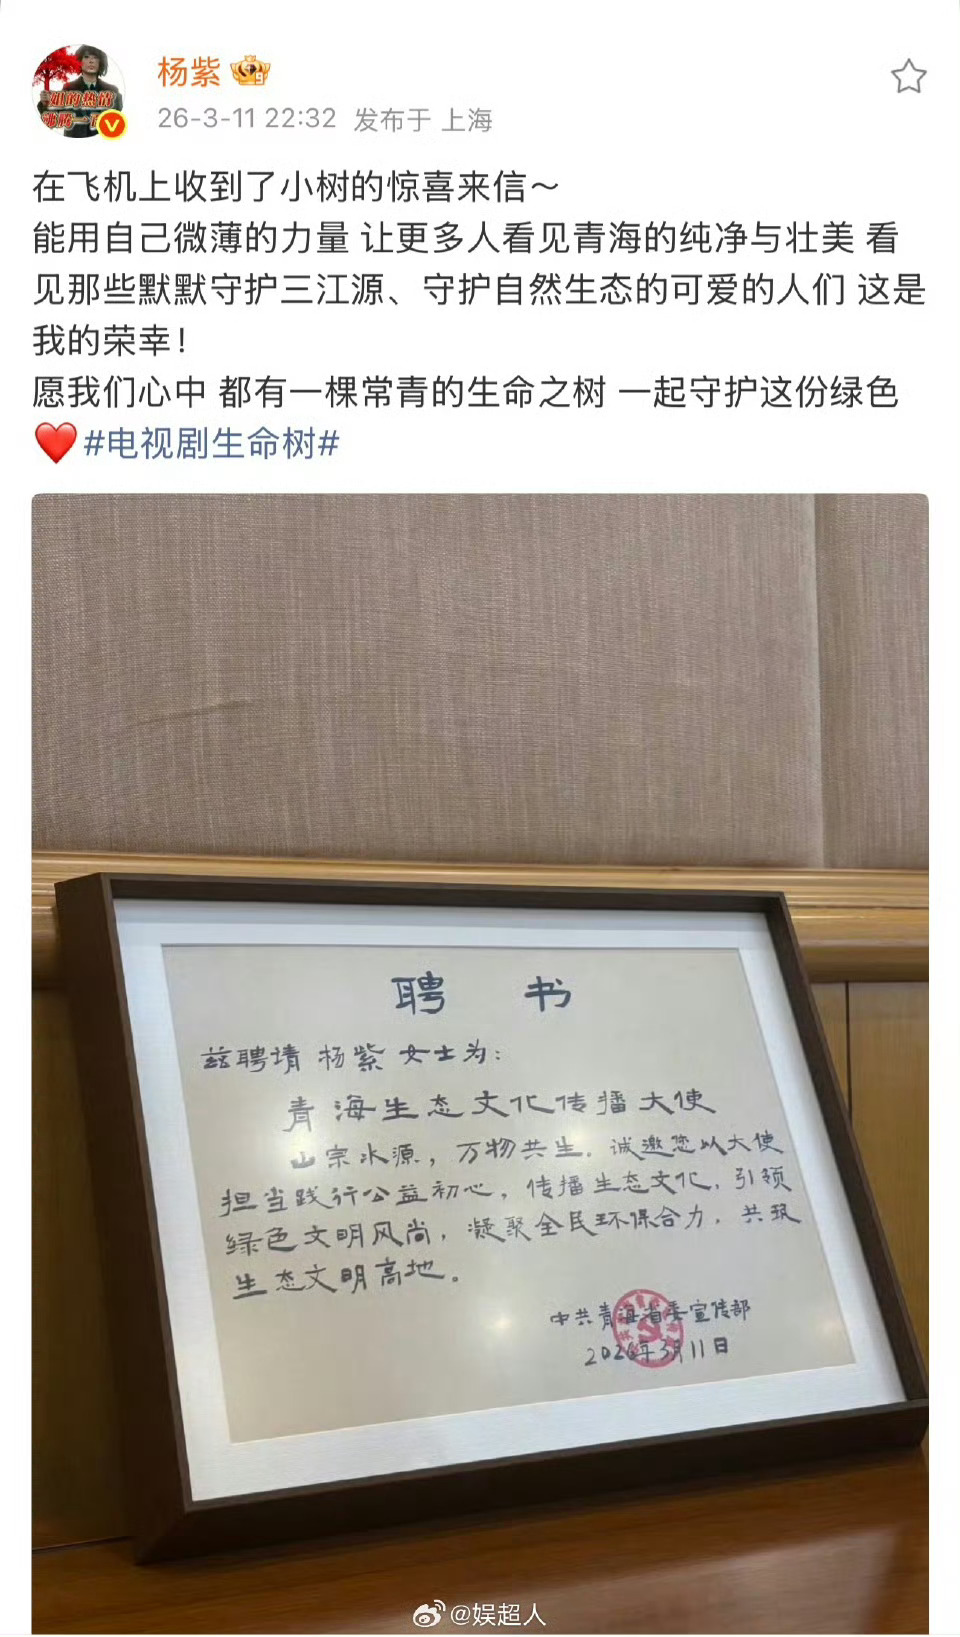 杨紫
26-3-11 22:32 发布于 上海
在飞机上收到了小树的惊喜来信～
能用自己微薄的力量 让更多人看见青海的纯净与壮美 看
见那些默默守护三江源、守护自然生态的可爱的人们 这是
我的荣幸！
愿我们心中 都有一棵常青的生命之树 一起守护这份绿色
❤️#电视剧生命树#
聘 书
兹聘请 杨紫 女士为：
青海生态文化传播大使
山宗水源，万物共生。诚邀您以大使
担当践行公益初心，传播生态文化，引领
绿色文明风尚，凝聚全民环保合力，共筑
生态文明高地。
中共青海省委宣传部
2026年3月11日
@娱超人